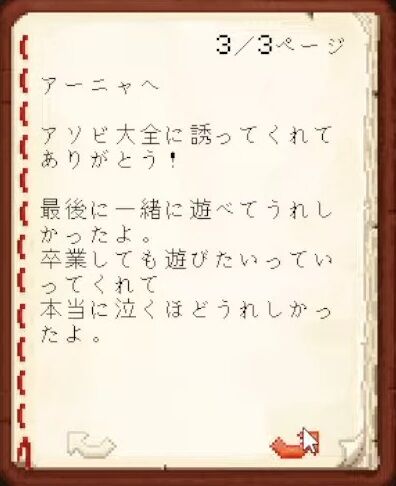 3/3ページ
アーニャへ
アソビ大全に誘ってくれて
ありがとう!
最後に一緒に遊べてうれし
かったよ。
卒業しても遊びたいってい
ってくれて
本当に泣くほどうれしかっ
たよ。